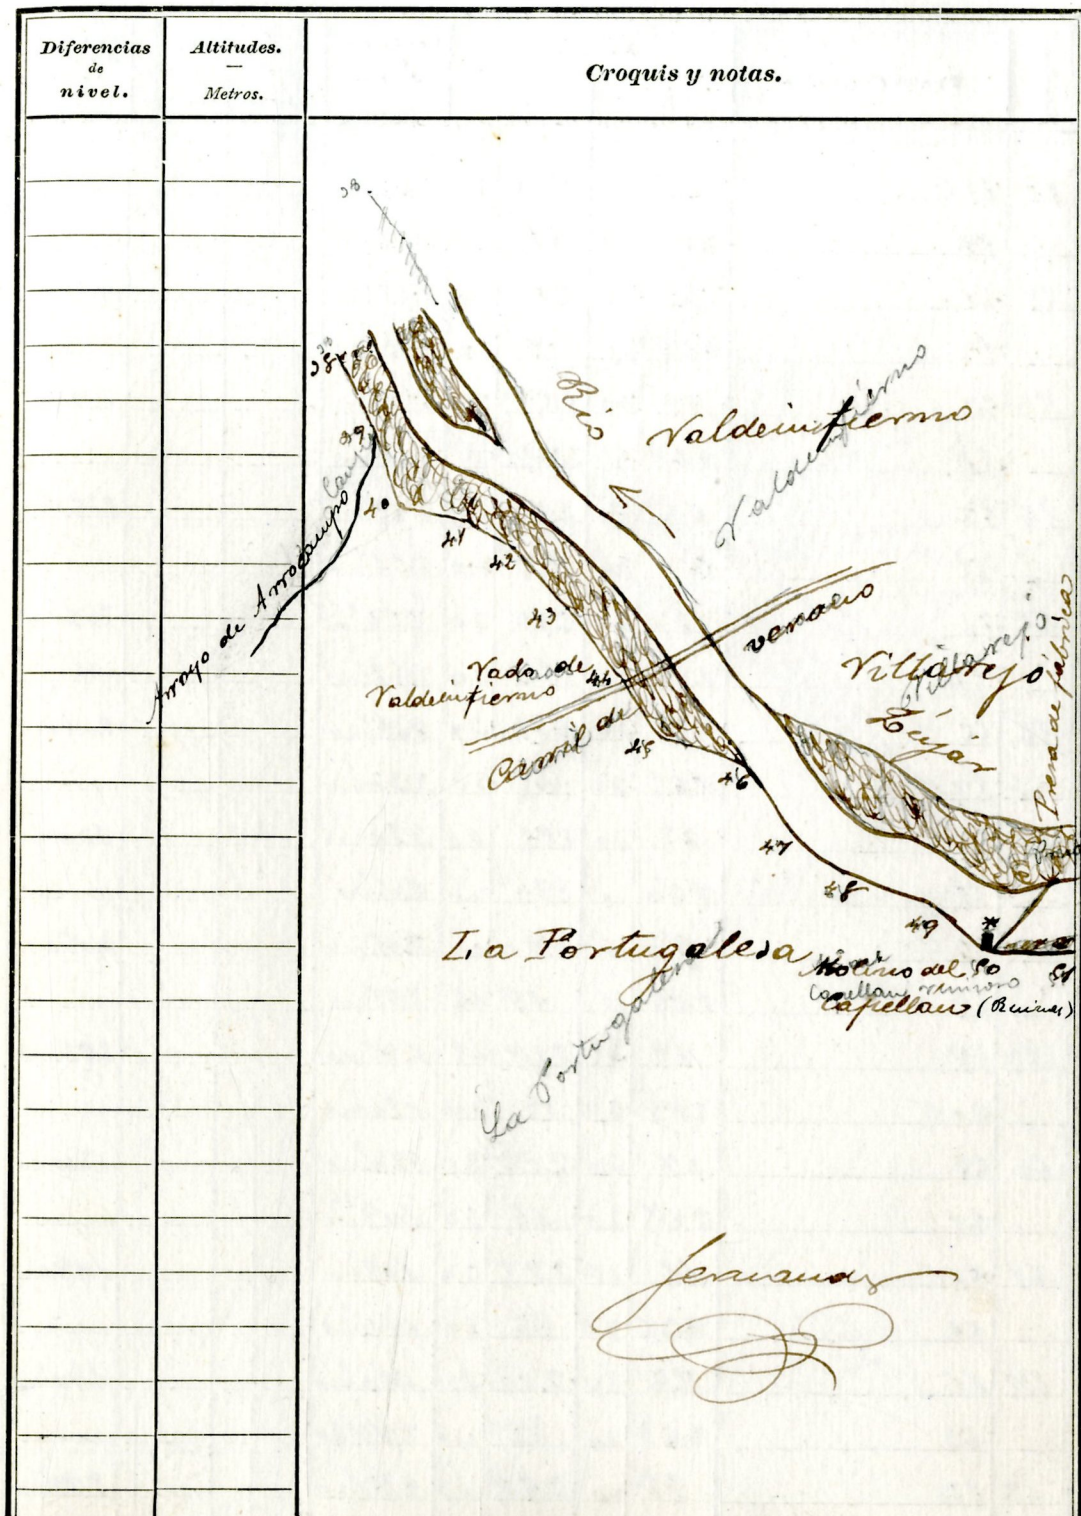 Diferencias
de
nivel.
Altitudes.
Metros.
Croquis y notas.
38
38
38
39
Campo
40
41
42
43
44
45
46
47
48
49
50
51
Río
Valdeinfierno
Valdeinfierno
Arroyo de Arrocampo
Vado de
Valdeinfierno
Carril de
verano
Villarejo
Villarejo
Tiétar
Presa de fábrica
La Portugalesa
La Portugalesa
Molino del
Capellan (Ruinas)
Capellan ruinoso
Fernandez